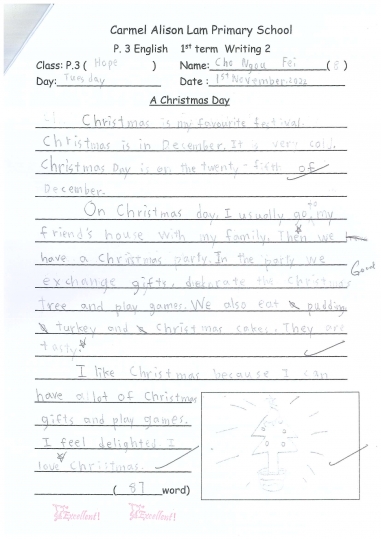 Carmel Alison Lam Primary School
P. 3 English 1st term Writing 2
Class: P.3 ( Hope ) Name: Cho Ngou Fei ( 8 )
Day: Tuesday Date : 1st November 2022
A Christmas Day
Christmas is my favourite festival.
Christmas is in December. It is very cold.
Christmas Day is on the twenty-fifth of
December.
On Christmas day, I usually go to my
friend's house with my family. Then we
have a Christmas party. In the party we
exchange gifts, decorate the Christmas
Good
tree and play games. We also eat pudding,
turkey and Christmas cakes. They are
tasty.
I like Christmas because I can
have a lot of Christmas
gifts and play games.
I feel delighted I
love Christmas.
( 87 word)
Excellent! Excellent!